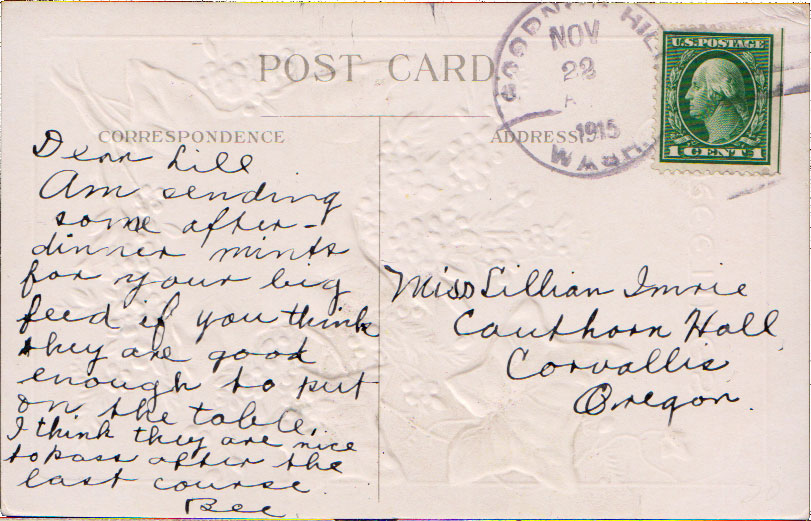 POST CARD
CORRESPONDENCE
ADDRESS
NOV
22
1915
WASH
U.S. POSTAGE
1 CENT 1
Dear Lill
Am sending
some after-
dinner mints
for your big
feed if you think
they are good
enough to put
on the table.
I think they are nice
to pass after the
last course
Bee
Miss Lillian Imrie
Cauthorn Hall
Corvallis
Oregon.